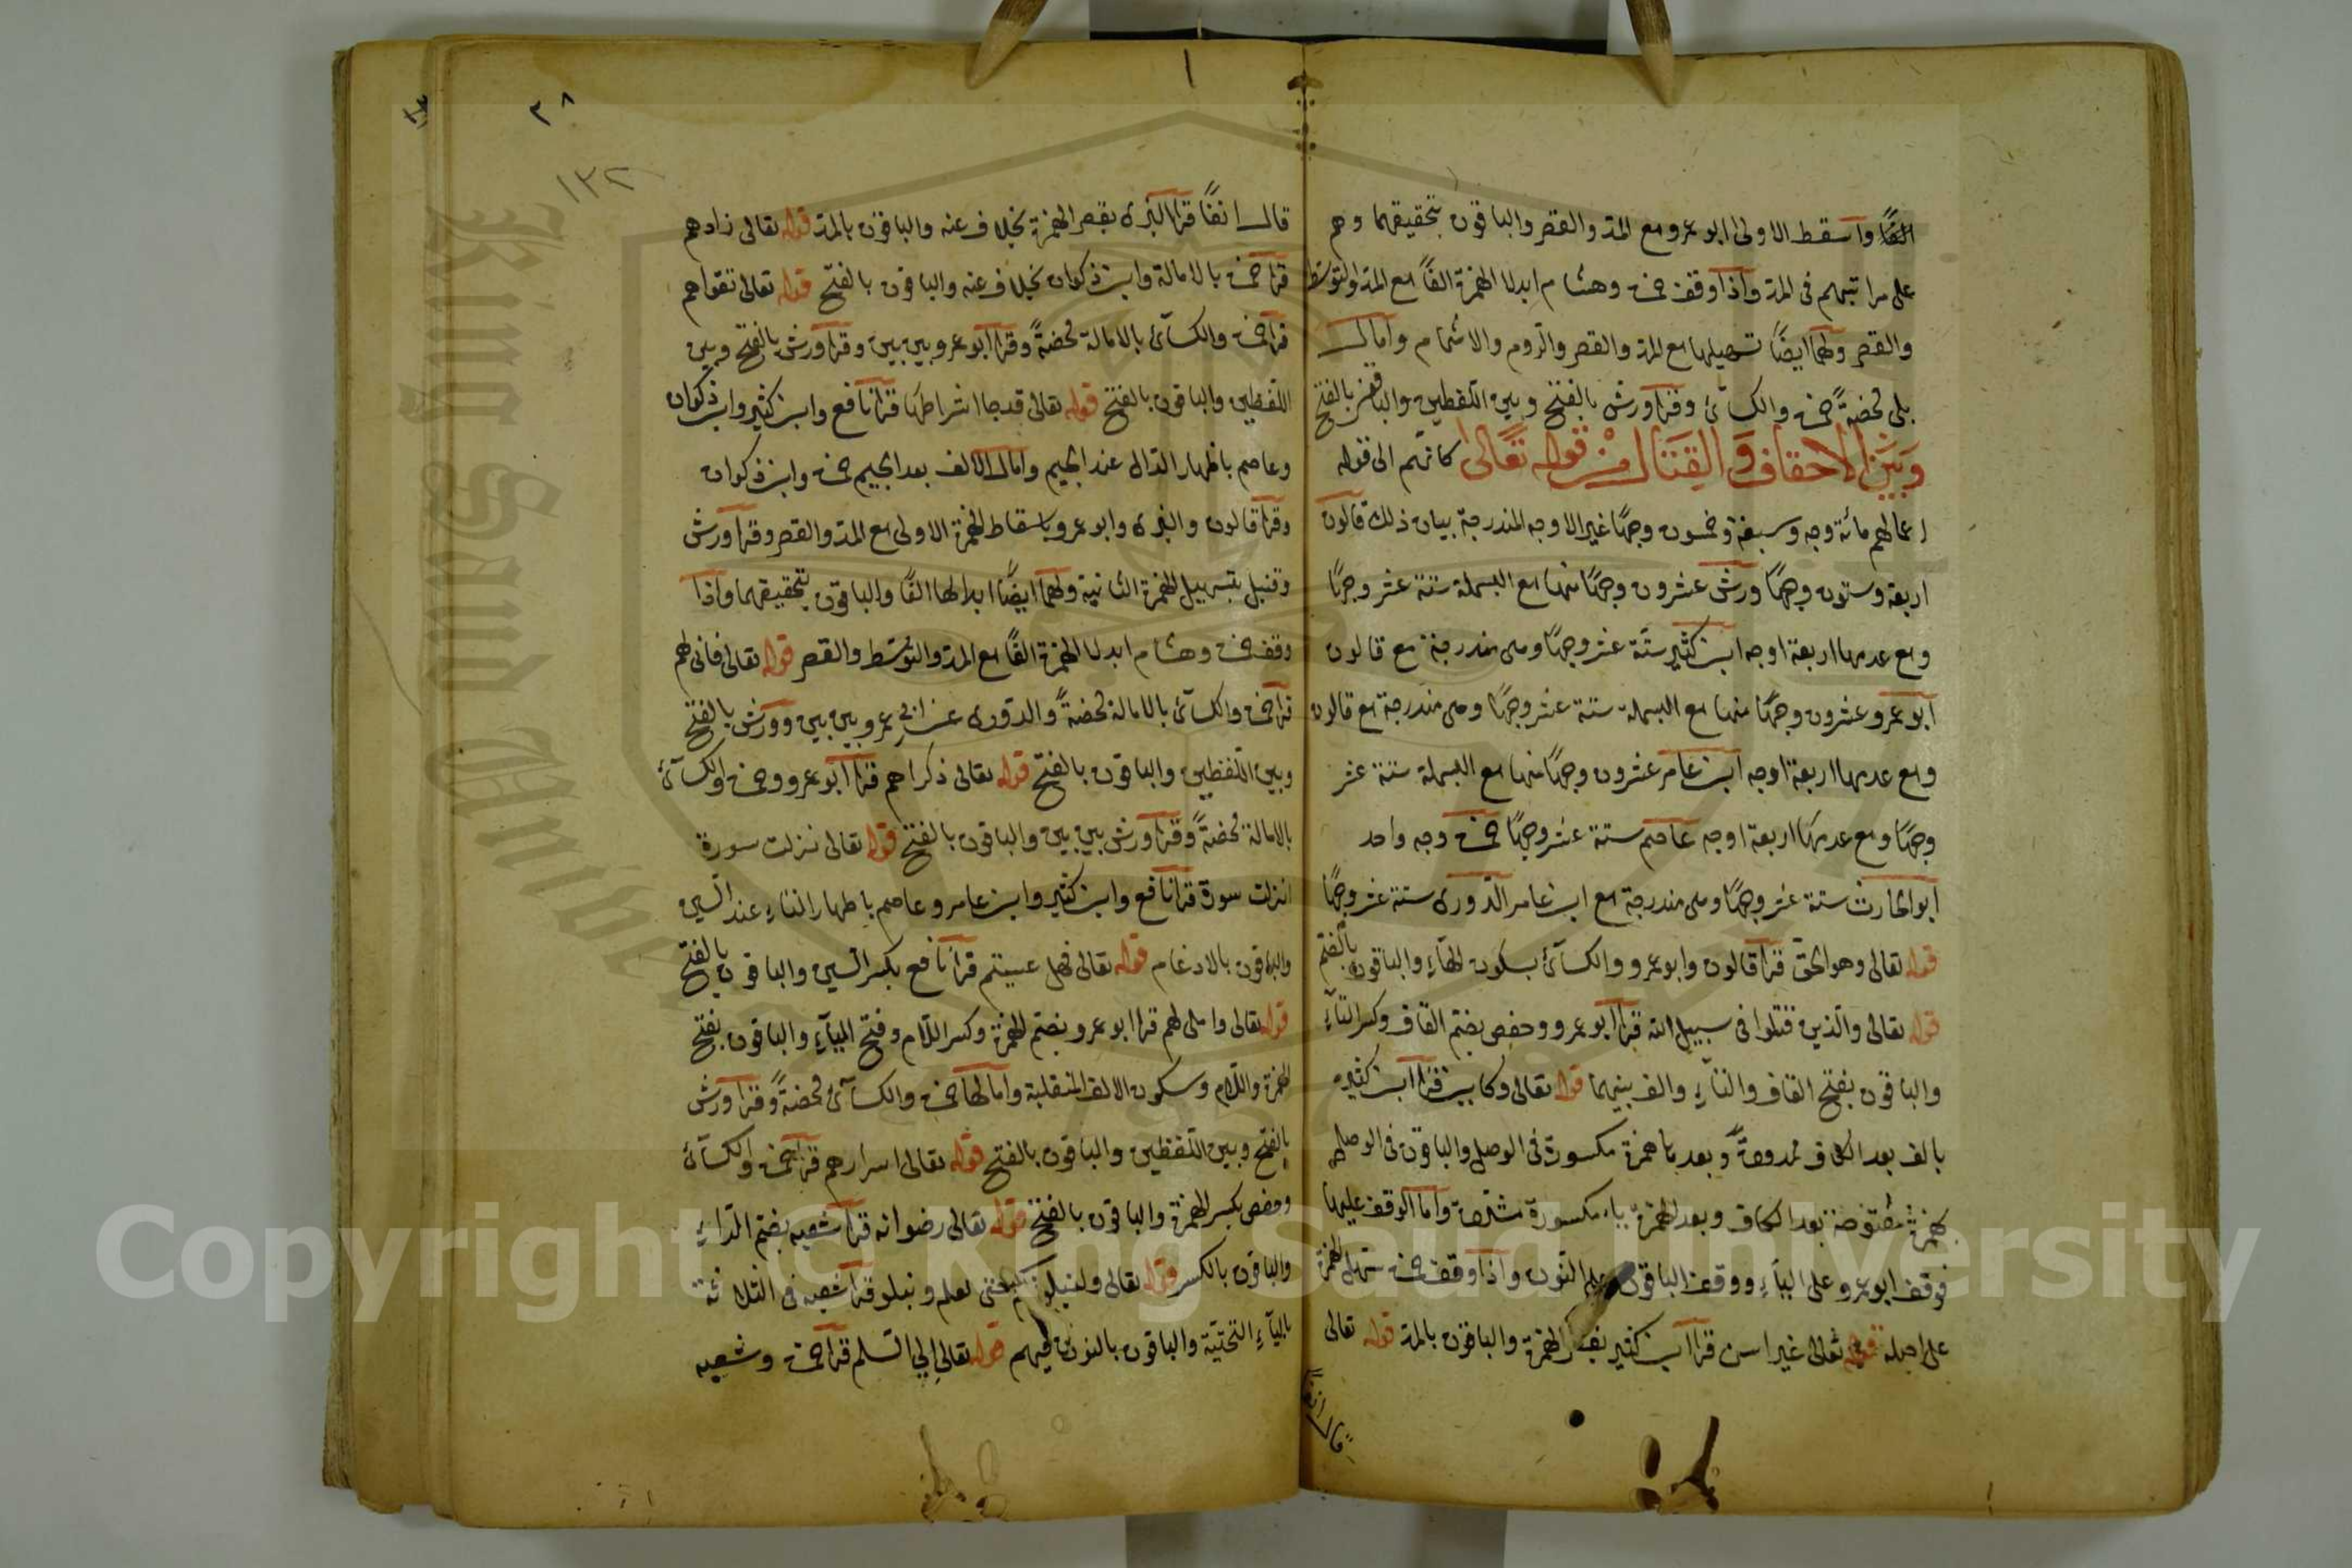 الفًا وأسقط الاولى ابو عمرو مع المد والقصر والباقون بتحقيقهما وهم
على مراتبهم فى المد واذا وقف حمزة وهشام ابدلا الهمزة الفًا مع المد والتوسط
والقصر ولهما ايضًا تسهيلها مع المد والقصر والروم والاشمام وامال
بلى محضةً حمزة والكسآئى وقرا ورش بالفتح وبين اللفظين والباقون بالفتح
وَبَيْنَ الاحقاف وَالقِتَال من قوله تَعَالى كانهم الى قوله
اعمالهم مائة وجه وسبعة وخمسون وجهًا غير الاوجه المندرجة بيان ذلك قالون
اربعة وستون وجهًا ورش عشرون وجهًا منها مع البسملة ستة عشر وجهًا
ومع عدمها اربعة اوجه ابن كثير ستة عشر وجهًا وهى مندرجة مع قالون
ابو عمرو عشرون وجهًا منها مع البسملة ستة عشر وجهًا وهى مندرجة مع قالون
ومع عدمها اربعة اوجه ابن عامر عشرون وجهًا منها مع البسملة ستة عشر
وجهًا ومع عدمها اربعة اوجه عاصم ستة عشر وجهًا حمزة وجه واحد
ابو الحارث ستة عشر وجهًا وهى مندرجة مع ابن عامر الدورى ستة عشر وجهًا
قوله تعالى وهو الحق قرا قالون وابو عمرو والكسآئى بسكون الهآء والباقون بالضم
قوله تعالى والذين قتلوا فى سبيل الله قرا ابو عمرو وحفص بضم القاف وكسر التآء
والباقون بفتح القاف والتآء والف بينهما قوله تعالى وكاين قرا ابن كثير
بالف بعد الكاف ممدودة وبعدها همزة مكسورة فى الوصل والباقون فى الوصل
بهمزة مفتوحة بعد الكاف وبعد الهمزة ياء مكسورة مشددة واما الوقف عليها
فوقف ابو عمرو على اليآء ووقف الباقون على النون واذا وقف حمزة سهل الهمزة
على اصله قوله تعالى غير اسن قرا ابن كثير بقصر الهمزة والباقون بالمد قوله تعالى
قال انفًا
٣٨
١٣٢
قال انفًا قرا البزى بقصر الهمزة بخلاف عنه والباقون بالمد قوله تعالى زادهم
قرا حمزة بالامالة وابن ذكوان بخلاف عنه والباقون بالفتح قوله تعالى تقواهم
قرا حمزة والكسآئى بالامالة محضةً وقرا ابو عمرو بين بين وقرا ورش بالفتح وبين
اللفظين والباقون بالفتح قوله تعالى فقد جا اشراطها قرا نافع وابن كثير وابن ذكوان
وعاصم باظهار الدال عند الجيم وامال الالف بعد الجيم حمزة وابن ذكوان
وقرا قالون والبزى وابو عمرو باسقاط الهمزة الاولى مع المد والقصر وقرا ورش
وقنبل بتسهيل الهمزة الثانية ولهما ايضًا ابدالها الفًا والباقون بتحقيقهما واذا
وقف حمزة وهشام ابدلا الهمزة الفًا مع المد والتوسط والقصر قوله تعالى فانى لهم
قرا حمزة والكسآئى بالامالة محضةً والدورى عن ابى عمرو بين بين وورش بالفتح
وبين اللفظين والباقون بالفتح قوله تعالى ذكراهم قرا ابو عمرو وحمزة والكسآئى
بالامالة محضةً وقرا ورش بين بين والباقون بالفتح قوله تعالى نزلت سورة
انزلت سورة قرا نافع وابن كثير وابن عامر وعاصم باظهار التاء عند السين
والباقون بالادغام قوله تعالى فهل عسيتم قرا نافع بكسر السين والباقون بالفتح
قوله تعالى واملى لهم قرا ابو عمرو بضم الهمزة وكسر اللام وفتح اليآء والباقون بفتح
الهمزة واللام وسكون الالف المنقلبة وامالها حمزة والكسآئى محضةً وقرا ورش
بالفتح وبين اللفظين والباقون بالفتح قوله تعالى اسرارهم قرا حمزة والكسآئى
وحفص بكسر الهمزة والباقون بالفتح قوله تعالى رضوانه قرا شعبه بضم الرآء
والباقون بالكسر قوله تعالى ولنبلونكم حتى نعلم ونبلو قرا شعبه فى الثلاثة
باليآء التحتية والباقون بالنون فيهم قوله تعالى الى السلم قرا حمزة وشعبه